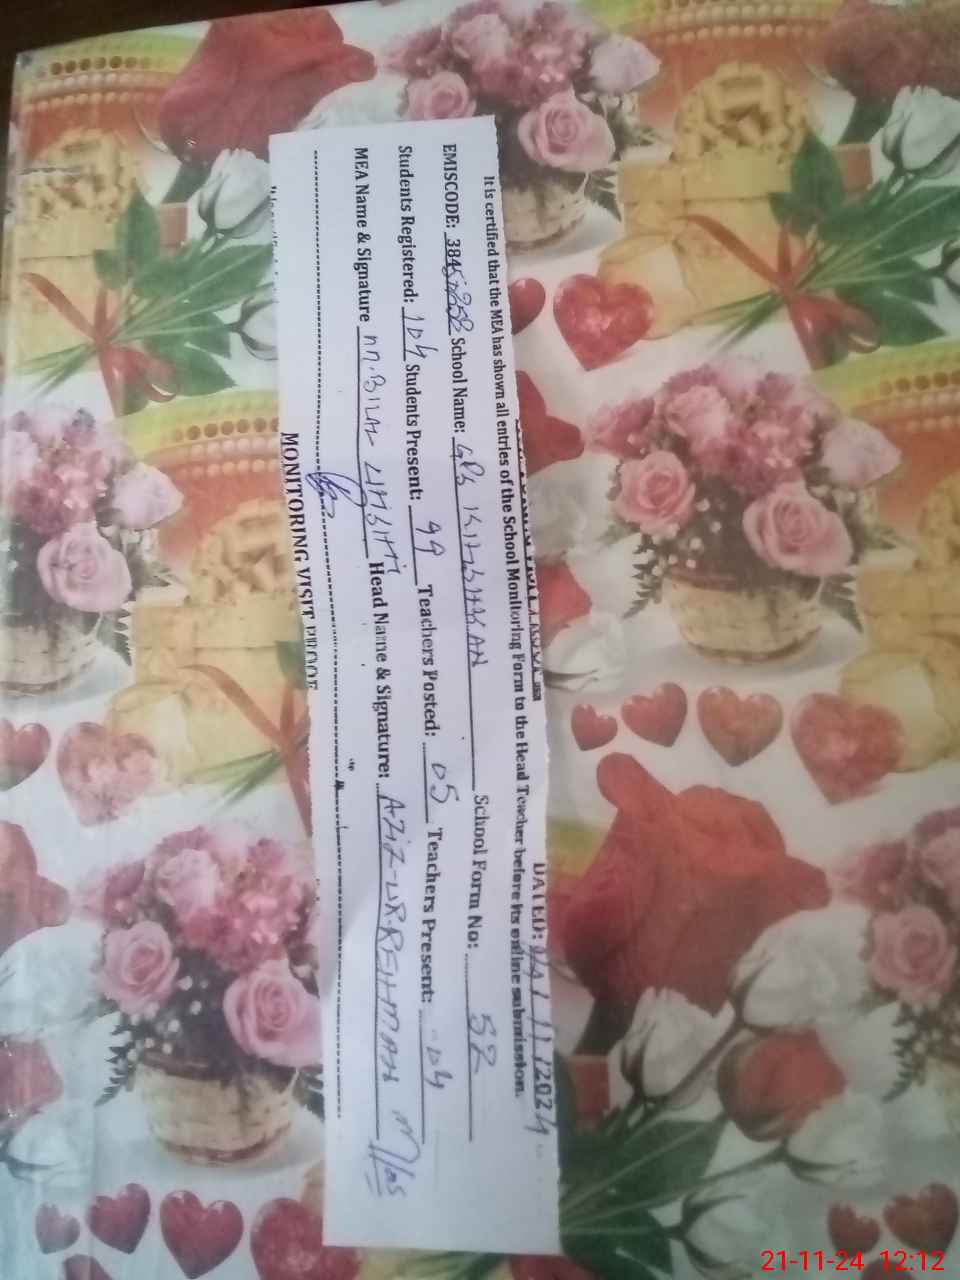 DATED: 21/11/2024
It is certified that the MEA has shown all entries of the School Monitoring Form to the Head Teacher before its online submission.
EMISCODE: 3845 School Name: GPS School Form No: 52
Students Registered: 104 Students Present: 99 Teachers Posted: 05 Teachers Present: 04
MEA Name & Signature M. BILAL Head Name & Signature: AZIZ-UR-REHMAN
MONITORING VISIT PROOF
21-11-24 12:12